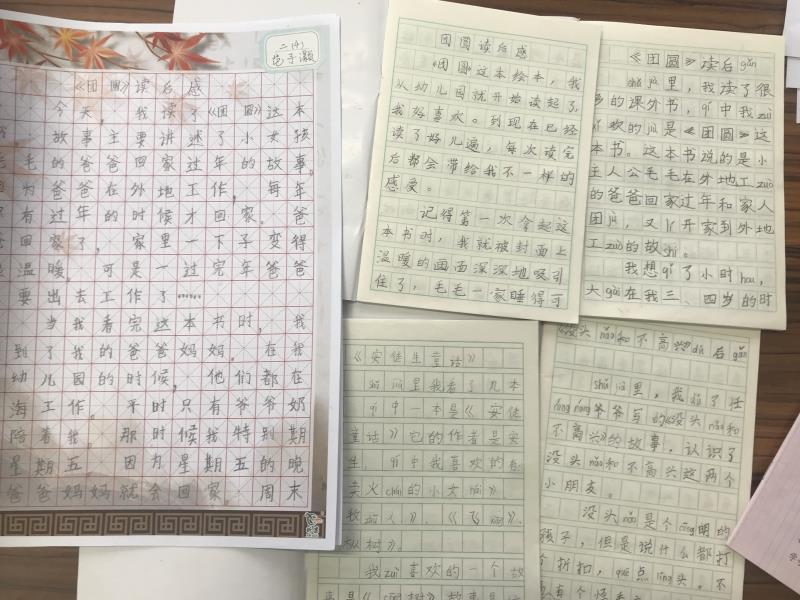 二(4)
《团圆》读后感
今天,我读了《团圆》这本
故事主要讲述了小女孩
毛毛的爸爸回家过年的故事。
因为爸爸在外地工作,每年
只有过年的时候才回家。爸
爸回家了,家里一下子变得
温暖,可是一过完年爸爸
要出去工作了……
当我看完这本书时,我
到了我的爸爸妈妈。在我
幼儿园的时候,他们都在
海工作。平时只有爷爷奶
陪着我。那时候我特别期
星期五,因为星期五的晚
爸爸妈妈就会回家,周末
团圆读后感
《团圆》这本绘本,我
从幼儿园就开始读起了,
我好喜欢。到现在已经
读了好几遍,每次读完
后都会带给我不一样的
感受。
记得第一次拿起这
本书时,我就被封面上
温暖的画面深深地吸引
住了,毛毛一家睡得可
《团圆》读后gǎn
shǔ jià里,我读了很
多的课外书,qí中我zuì
xǐ欢的jiù是《团圆》这
本书。这本书说的是小
主人公毛毛在外地工zuò
的爸爸回家过年和家人
团jù,又lí开家到外地
工zuò的故shì。
我想qǐ了小时hou,
大gài在我三、四岁的时
《安徒生童话》
shǔ jià里我看了九本
qí中一本是《安徒
童话》它的作者是安
生,qí中我喜欢的有
卖火chái的小女hái》、
《飞
树》。
我zuì喜欢的一个故
《没头nǎo和不高兴》dú后gǎn
shǔ jià里,我dú了任
róng róng爷爷写的《没头nǎo和
不高兴》的故事,认识了
没头nǎo和不高兴这两个
小朋友。
没头nǎo是个cōng明的
孩子,但是说什么都打
个折扣,quē点líng头。不